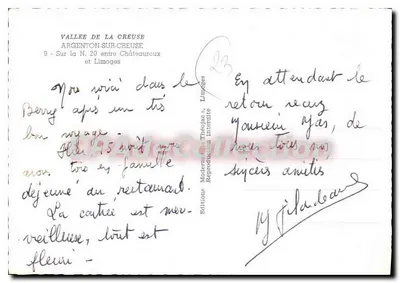 VALLEE DE LA CREUSE
ARGENTON-SUR-CREUSE
8 - Sur la N. 20 entre Châteauroux
et Limoges
23
Nous voici dans le
Berry après un très
bon voyage.
Hier soir nous
avons tous en famille
déjeuné au restaurant.
La contrée est mer-
veilleuse, tout est
fleuri -
Editions Modernes Théojac, Limoges
Reproduction interdite
En attendant le
retour recevez
Monsieur, de
nous tous nos
sincères amitiés